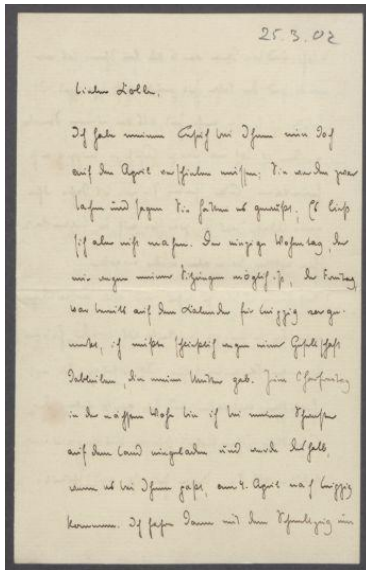 25.3.02
Lieber Kolbe.
Ich habe meinen Besuch bei Ihnen nun doch
auf den April verschieben müssen; Sie werden zwar
lachen und sagen Sie hätten es gewußt; Es ließ
sich aber nicht machen. Der einzige Wochentag, der
mir wegen meiner Sitzungen möglich ist, der Freitag,
war bereits auf dem Kalender für Leipzig vorge-
merkt, ich mußte schließlich wegen einer Gesellschaft
dableiben, die meine Mutter gab. Zum Charfreitag
in der nächsten Woche bin ich bei meiner Schwester
auf dem Land eingeladen und werde deshalb,
wenn es bei Ihnen paßt, am 4. April nach Leipzig
kommen. Ich fahre dann mit dem Schnellzug um